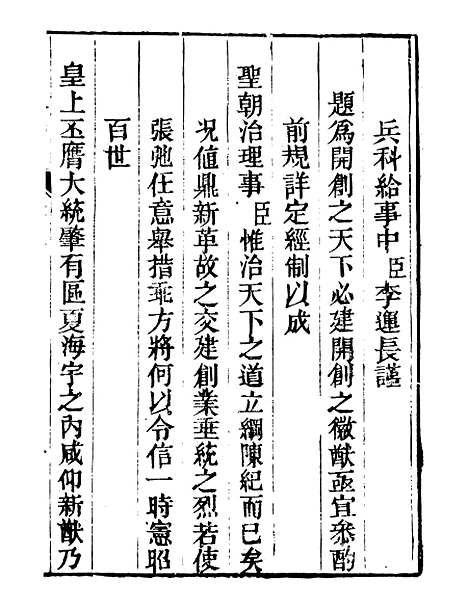 兵科給事中臣李運長謹
題爲開創之天下必建開創之徽猷亟宜叅酌
前規詳定經制以成
聖朝治理事臣惟治天下之道立綱陳紀而已矣
况值鼎新革故之交建創業垂統之烈若使
張弛任意舉措乖方將何以令信一時憲昭
百世
皇上丕膺大統肇有區夏海宇之內咸仰新猷乃